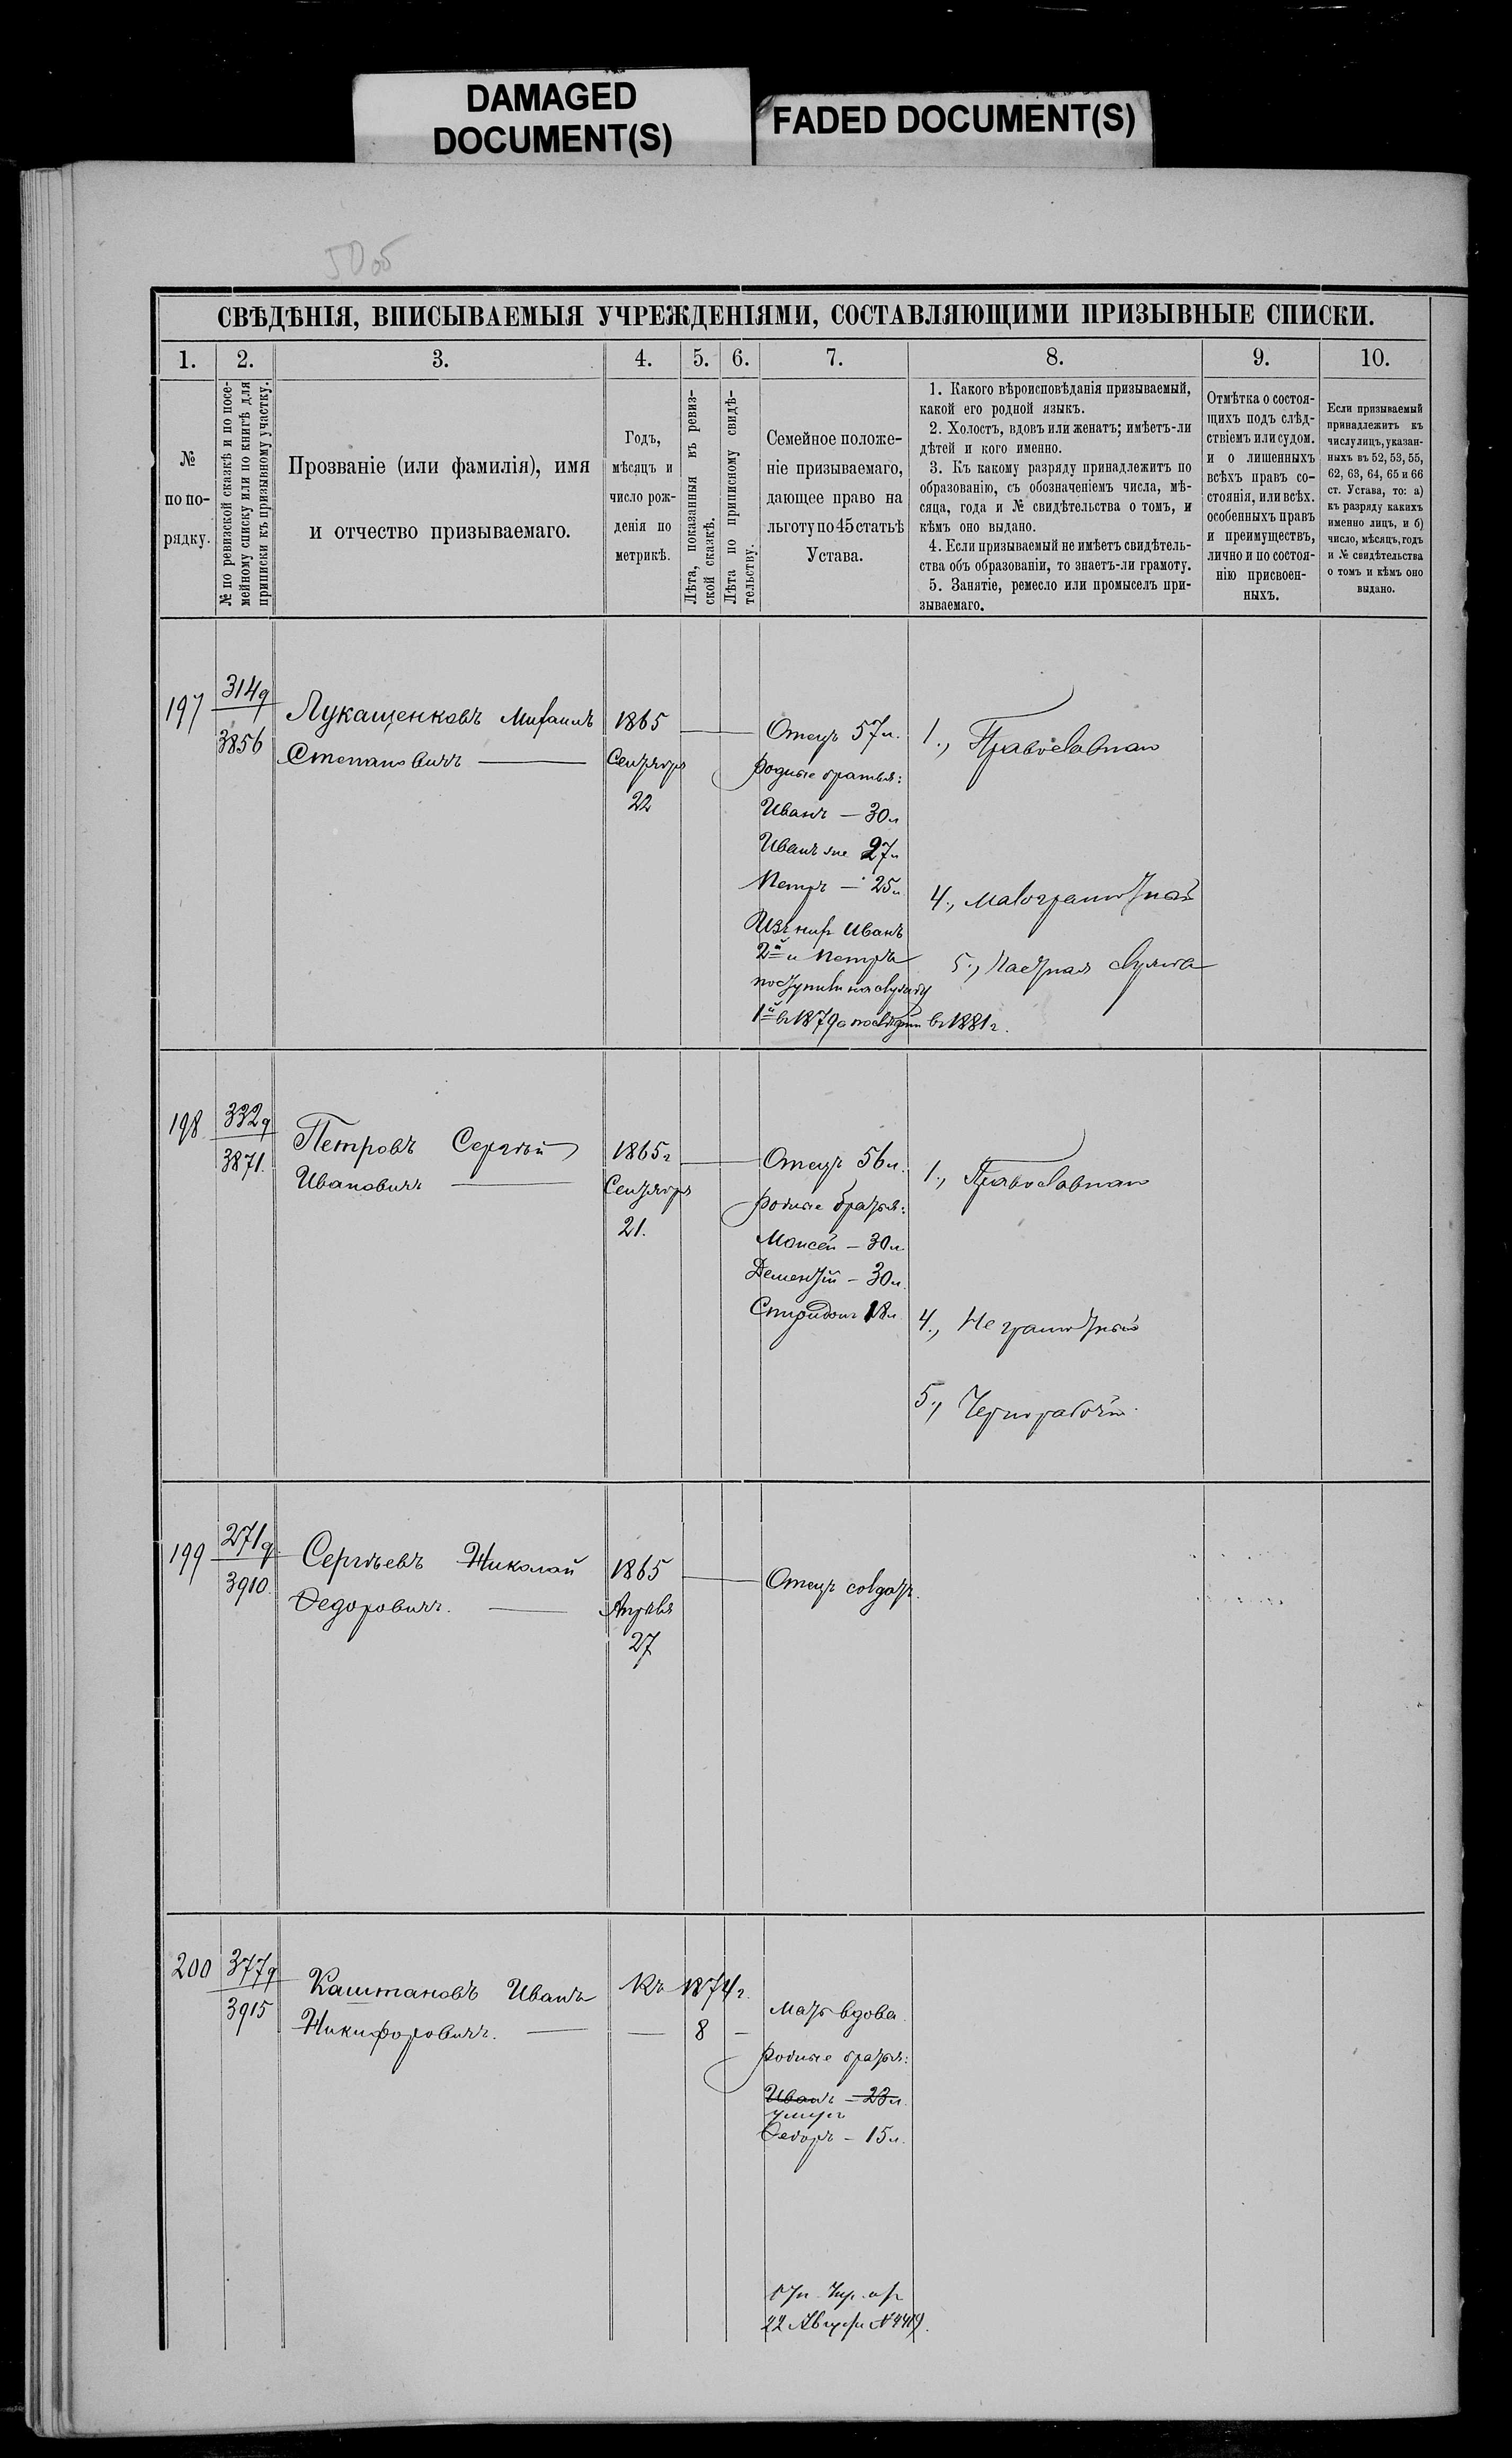 DAMAGED
DOCUMENT(S)
FADED DOCUMENT(S)
СВѢДѢНІЯ, ВПИСЫВАЕМЫЯ УЧРЕЖДЕНІЯМИ, СОСТАВЛЯЮЩИМИ ПРИЗЫВНЫЕ СПИСКИ.
1.
2.
3.
4.
5.
6.
7.
8.
9.
10.
№
по по-
рядку.
№ по ревизской сказкѣ и по посе-
мейному списку или по книгѣ для
приписки къ призывному участку.
Прозваніе (или фамилія), имя
и отчество призываемаго.
Годъ,
мѣсяцъ и
число рож-
денія по
метрикѣ.
Лѣта, показанныя въ ревиз-
ской сказкѣ.
Лѣта по приписному свидѣ-
тельству.
Семейное положе-
ніе призываемаго,
дающее право на
льготу по 45 статьѣ
Устава.
1. Какого вѣроисповѣданія призываемый,
какой его родной языкъ.
2. Холостъ, вдовъ или женатъ; имѣетъ-ли
дѣтей и кого именно.
3. Къ какому разряду принадлежитъ по
образованію, съ обозначеніемъ числа, мѣ-
сяца, года и № свидѣтельства о томъ, и
кѣмъ оно выдано.
4. Если призываемый не имѣетъ свидѣтель-
ства объ образованіи, то знаетъ-ли грамоту.
5. Занятіе, ремесло или промыселъ при-
зываемаго.
Отмѣтка о состоя-
щихъ подъ слѣд-
ствіемъ или судом.
и о лишенныхъ
всѣхъ правъ со-
стоянія, или всѣх.
особенныхъ правъ
и преимуществъ,
лично и по состоя-
нію присвоен-
ныхъ.
Если призываемый
принадлежитъ къ
числу лицъ, указан-
ныхъ въ 52, 53, 55,
62, 63, 64, 65 и 66
ст. Устава, то: а)
къ разряду какихъ
именно лицъ, и б)
число, мѣсяцъ, годъ
и № свидѣтельства
о томъ и кѣмъ оно
выдано.
197
3149
3856
Лукащенковъ Михаилъ
Степановичъ
1865
Сентября
22
Отецъ 57 л.
родные братья:
Иванъ — 30 л
Иванъ же 27 л
Петръ — 25 л
Изъ них Иванъ
2й и Петръ
поступили на службу
1й въ 1879 а послѣдній въ 1881 г.
1., Православнаго
4., малограмотный
5., Частная служба
198
3329
3871.
Петровъ Сергѣй
Ивановичъ
1865 г
Сентября
21.
Отецъ 56 л.
родные братья:
Моисей — 30 л
Дементій — 30 л.
Спиридонъ 18 л
1., Православнаго
4., Неграмотный
5., Чернорабочій
199
2719
3910.
Сергѣевъ Николай
Федоровичъ.
1865
Апрѣля
27
Отецъ солдатъ.
200
3779
3915
Каштановъ Иванъ
Никифоровичъ.
Къ 1874 г.
8
мать вдова
родные братья:
Иванъ — 23 л.
умеръ
Федоръ — 15 л.
22 Августа №